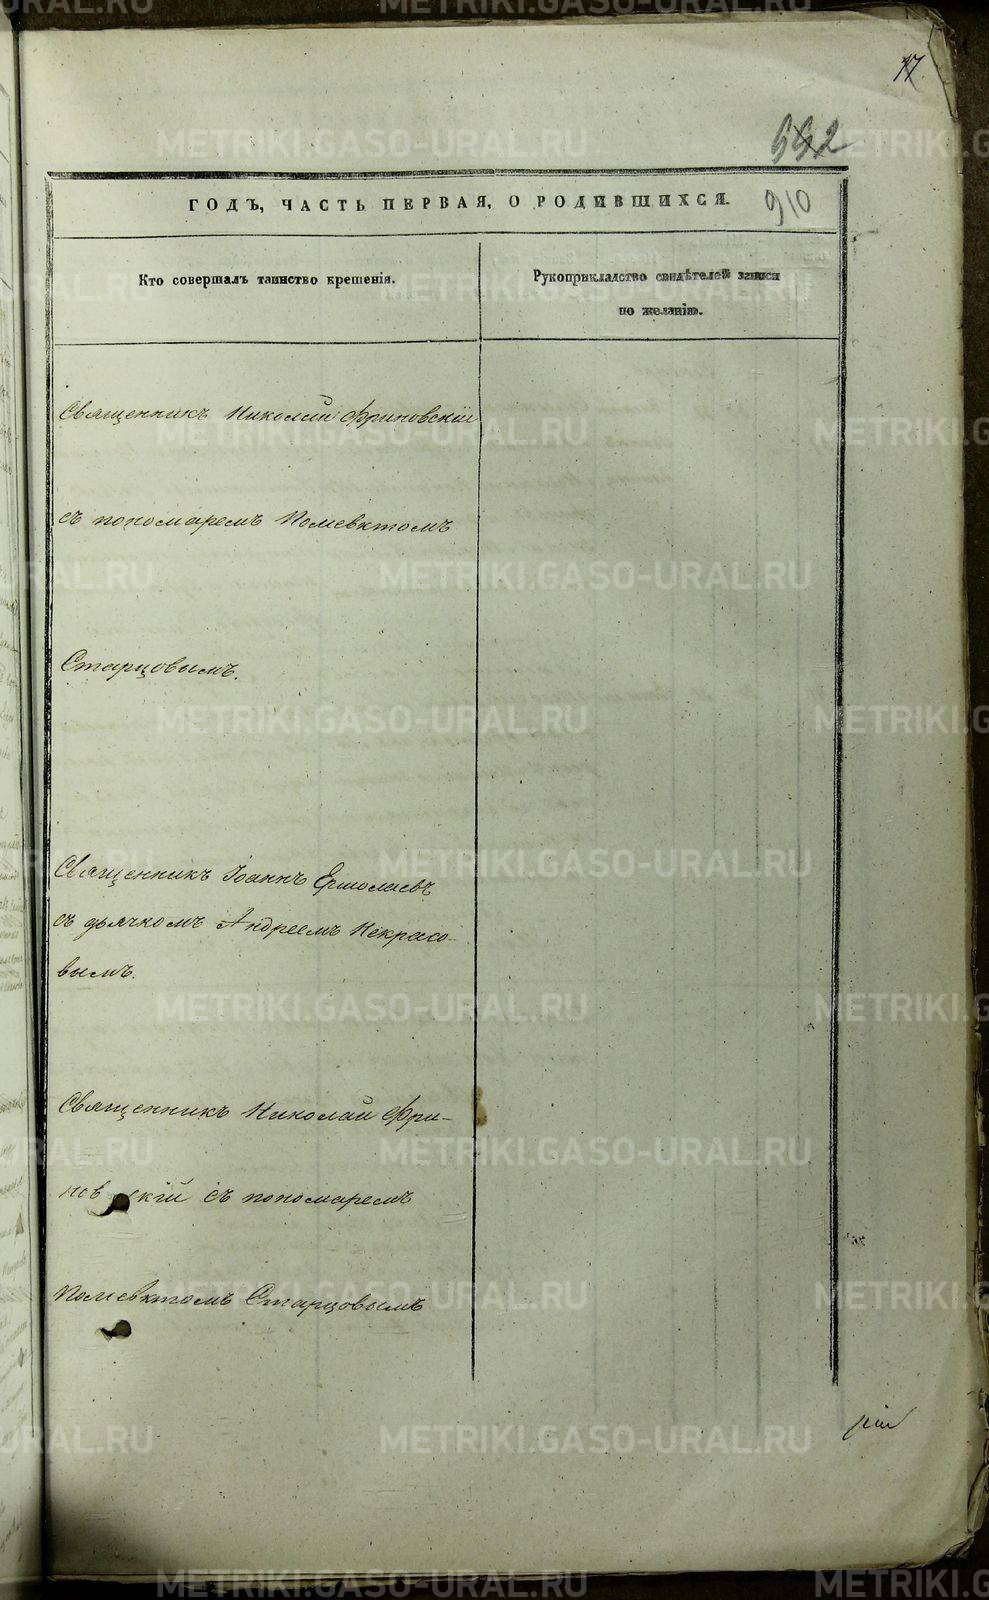 17
552
ГОДЪ, ЧАСТЬ ПЕРВАЯ, О РОДИВШИХСЯ.
910
Кто совершалъ таинство крещенія.
Рукоприкладство свидѣтелей записи
по желанію.
Священникъ Николай Фриновскій
съ пономаремъ Полевктомъ
Старцовымъ.
Священникъ Іоаннъ Ермолаевъ
съ дьячкомъ Андреемъ Некрасо-
вымъ.
Священникъ Николай Фри-
нов кій съ пономаремъ
Полевктомъ Старцовымъ
METRIKI.GASO-URAL.RU